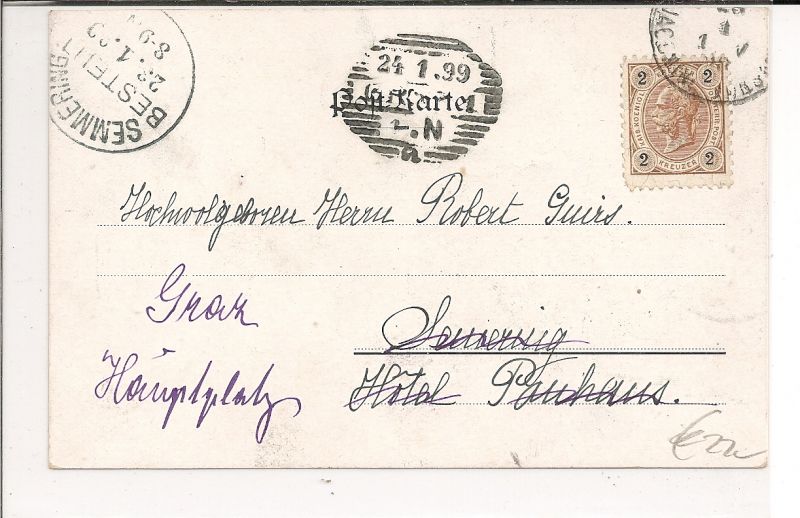 SEMMERING
BESTELLT
23.1.99
8-9.V
24 1.99
Post-Karte
L.N
a
2 2
KAIS. KOENIGL. OESTERR. POST
KREUZER
2 2
Hochwolgeboren Herrn Robert Guirs.
Graz
Semering
Hauptplatz
Hôtel Panhans.